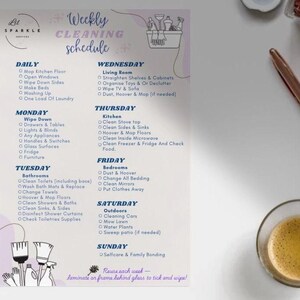 Let
SPARKLE
Weekly
CLEANING
schedule
DAILY
Mop Kitchen Floor
Open Windows
Wipe Down Sides
Make Beds
Washing Up
One Load Of Laundry
MONDAY
Wipe Down
Drawers & Tables
Lights & Blinds
Any Appliances
Handles & Switches
Glass Surfaces
Fridge
Furniture
TUESDAY
Bathrooms
Clean Toilets (including base)
Wash Bath Mats & Replace
Change Towels
Hoover & Mop Floors
Clean Showers & Baths
Clean Sinks, & Sides
Disinfect Shower Curtains
Check Toiletries Supplies
WEDNESDAY
Living Room
Straighten Shelves & Cabinets
Organise Toys & Or Declutter
Wipe TV & Sofa
Dust, Hoover & Mop (if needed)
THURSDAY
Kitchen
Clean Stove top
Clean Sides & Sinks
Hoover & Mop Floors
Clean Inside Microwave
Clean Freezer & Fridge And Check
Food.
FRIDAY
Bedrooms
Dust & Hoover
Change All Bedding
Clean Mirrors
Put Clothes Away
SATURDAY
Outdoors
Cleaning Cars
Mow Lawn
Water Plants
Sweep patio (if needed)
SUNDAY
Selfcare & Family Bonding
Reuse each week —
laminate or frame behind glass to tick and wipe!